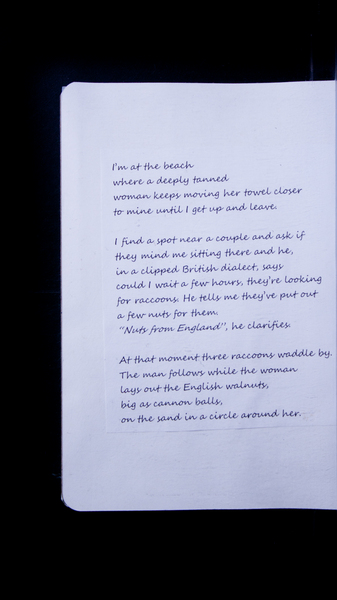 I'm at the beach
where a deeply tanned
woman keeps moving her towel closer
to mine until I get up and leave.
I find a spot near a couple and ask if
they mind me sitting there and he,
in a clipped British dialect, says
could I wait a few hours, they're looking
for raccoons. He tells me they've put out
a few nuts for them.
"Nuts from England", he clarifies.
At that moment three raccoons waddle by.
The man follows while the woman
lays out the English walnuts,
big as cannon balls,
on the sand in a circle around her.